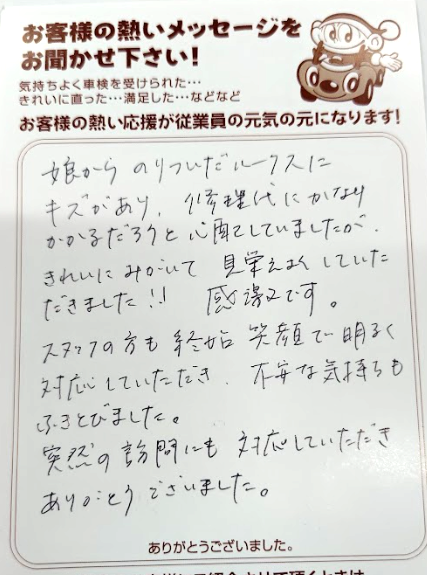 お客様の熱いメッセージを
お聞かせ下さい！
気持ちよく車検を受けられた…
きれいに直った…満足した…などなど
お客様の熱い応援が従業員の元気の元になります！
娘から のりついだルークスに
キズがあり、修理代にかなり
かかるだろうと心配していましたが、
きれいにみがいて 見栄えよくしていた
だきました!! 感激です。
スタッフの方も 終始 笑顔で明るく
対応していただき、不安な気持ちも
ふきとびました。
突然の訪問にも 対応していただき
ありがとうございました。
ありがとうございました。